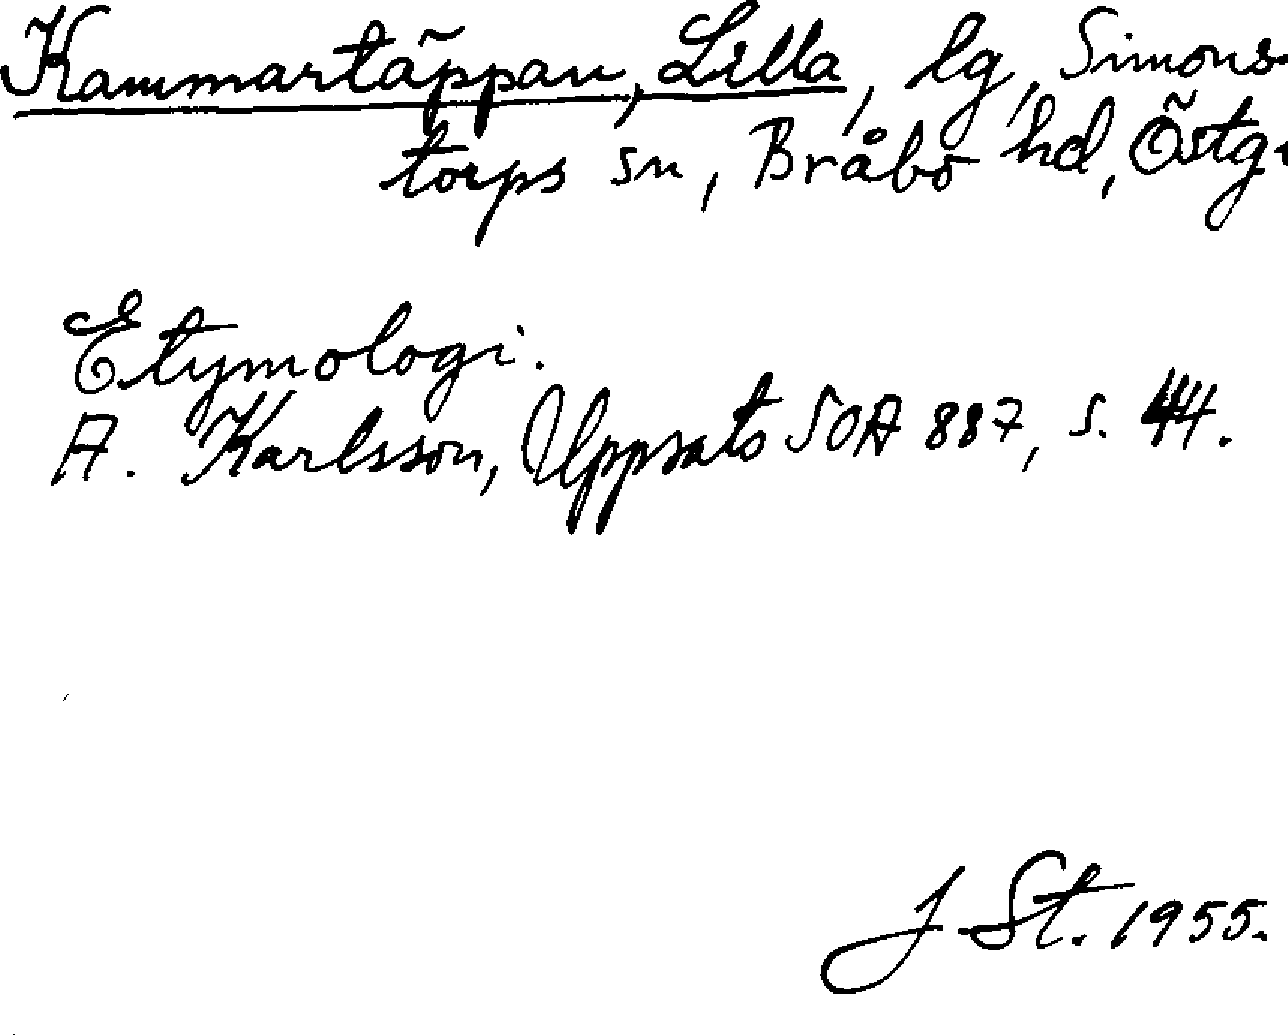 Kammartäppan, Lilla, lg, Simons-
torps sn, Bråbo hd, Östg.
Etymologi.
A. Karlsson, Uppsats SOA 887, s. 44.
J. St. 1955.